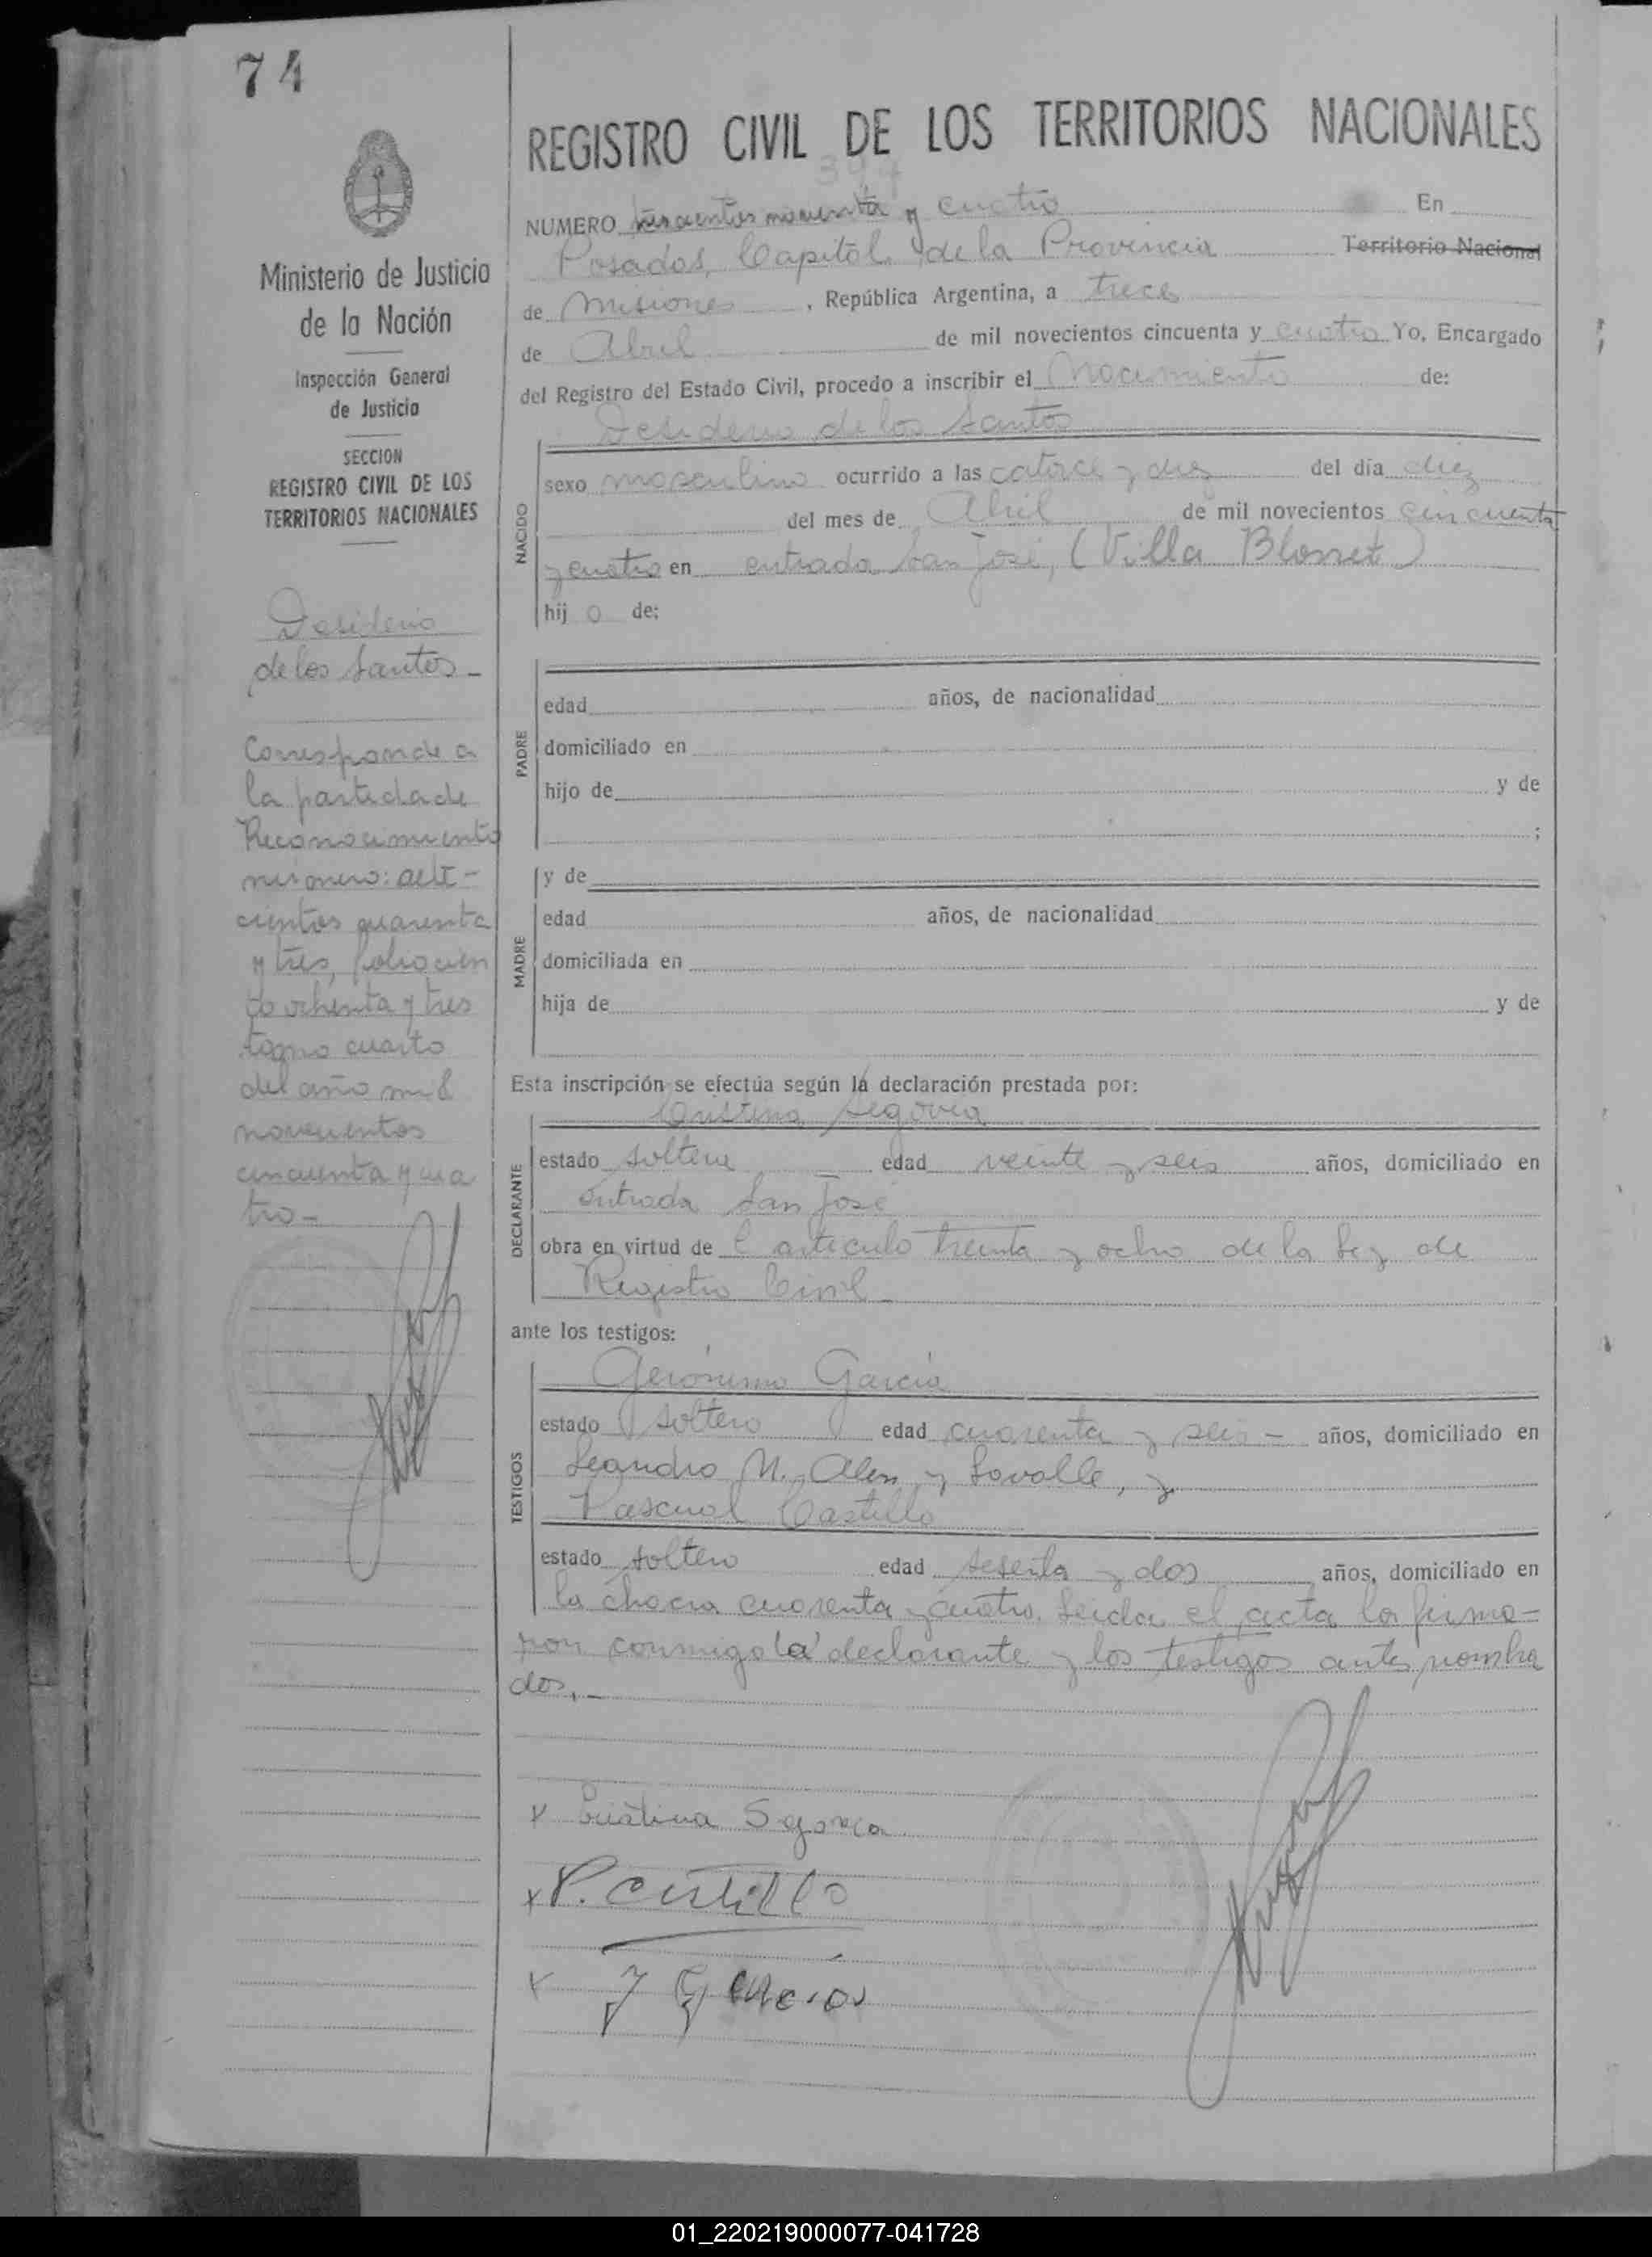 74
REGISTRO CIVIL DE LOS TERRITORIOS NACIONALES
394
NUMERO trescientos noventa y cuatro En
Posadas, Capital de la Provincia Territorio Nacional
de Misiones, República Argentina, a trece
de Abril de mil novecientos cincuenta y cuatro Yo, Encargado
del Registro del Estado Civil, procedo a inscribir el Nacimiento de:
Ministerio de Justicia
de la Nación
Inspección General
de Justicia
SECCION
REGISTRO CIVIL DE LOS
TERRITORIOS NACIONALES
Desiderio
de los Santos -
Corresponde a
la partida de
Reconocimiento
número:
cientos cuarenta
y tres, folio cien
to ochenta y tres
tomo cuarto
del año mil
novecientos
cincuenta y cua
tro -
NACIDO
Desiderio de los Santos
sexo masculino ocurrido a las catorce y diez del día diez
del mes de Abril de mil novecientos cincuenta
y cuatro en entrada San José, (Villa Blosset)
hij o de:
PADRE
edad años, de nacionalidad
domiciliado en
hijo de y de
;
MADRE
y de
edad años, de nacionalidad
domiciliada en
hija de y de
Esta inscripción se efectúa según la declaración prestada por:
DECLARANTE
Cristina Segovia
estado soltera edad veinte y seis años, domiciliado en
entrada San José
obra en virtud de l artículo treinta y ocho de la Ley de
Registro Civil
ante los testigos:
TESTIGOS
Gerónimo García
estado soltero edad cuarenta y seis - años, domiciliado en
Leandro N. Alem y Lavalle, y
Pascual Castillo
estado soltero edad sesenta y dos años, domiciliado en
la chacra cuarenta y cuatro. Leida el acta la firma-
ron conmigo la declarante y los testigos antes nombra
dos.-
x Cristina Segovia
x P. Castillo
x J Garcia
01_220219000077-041728